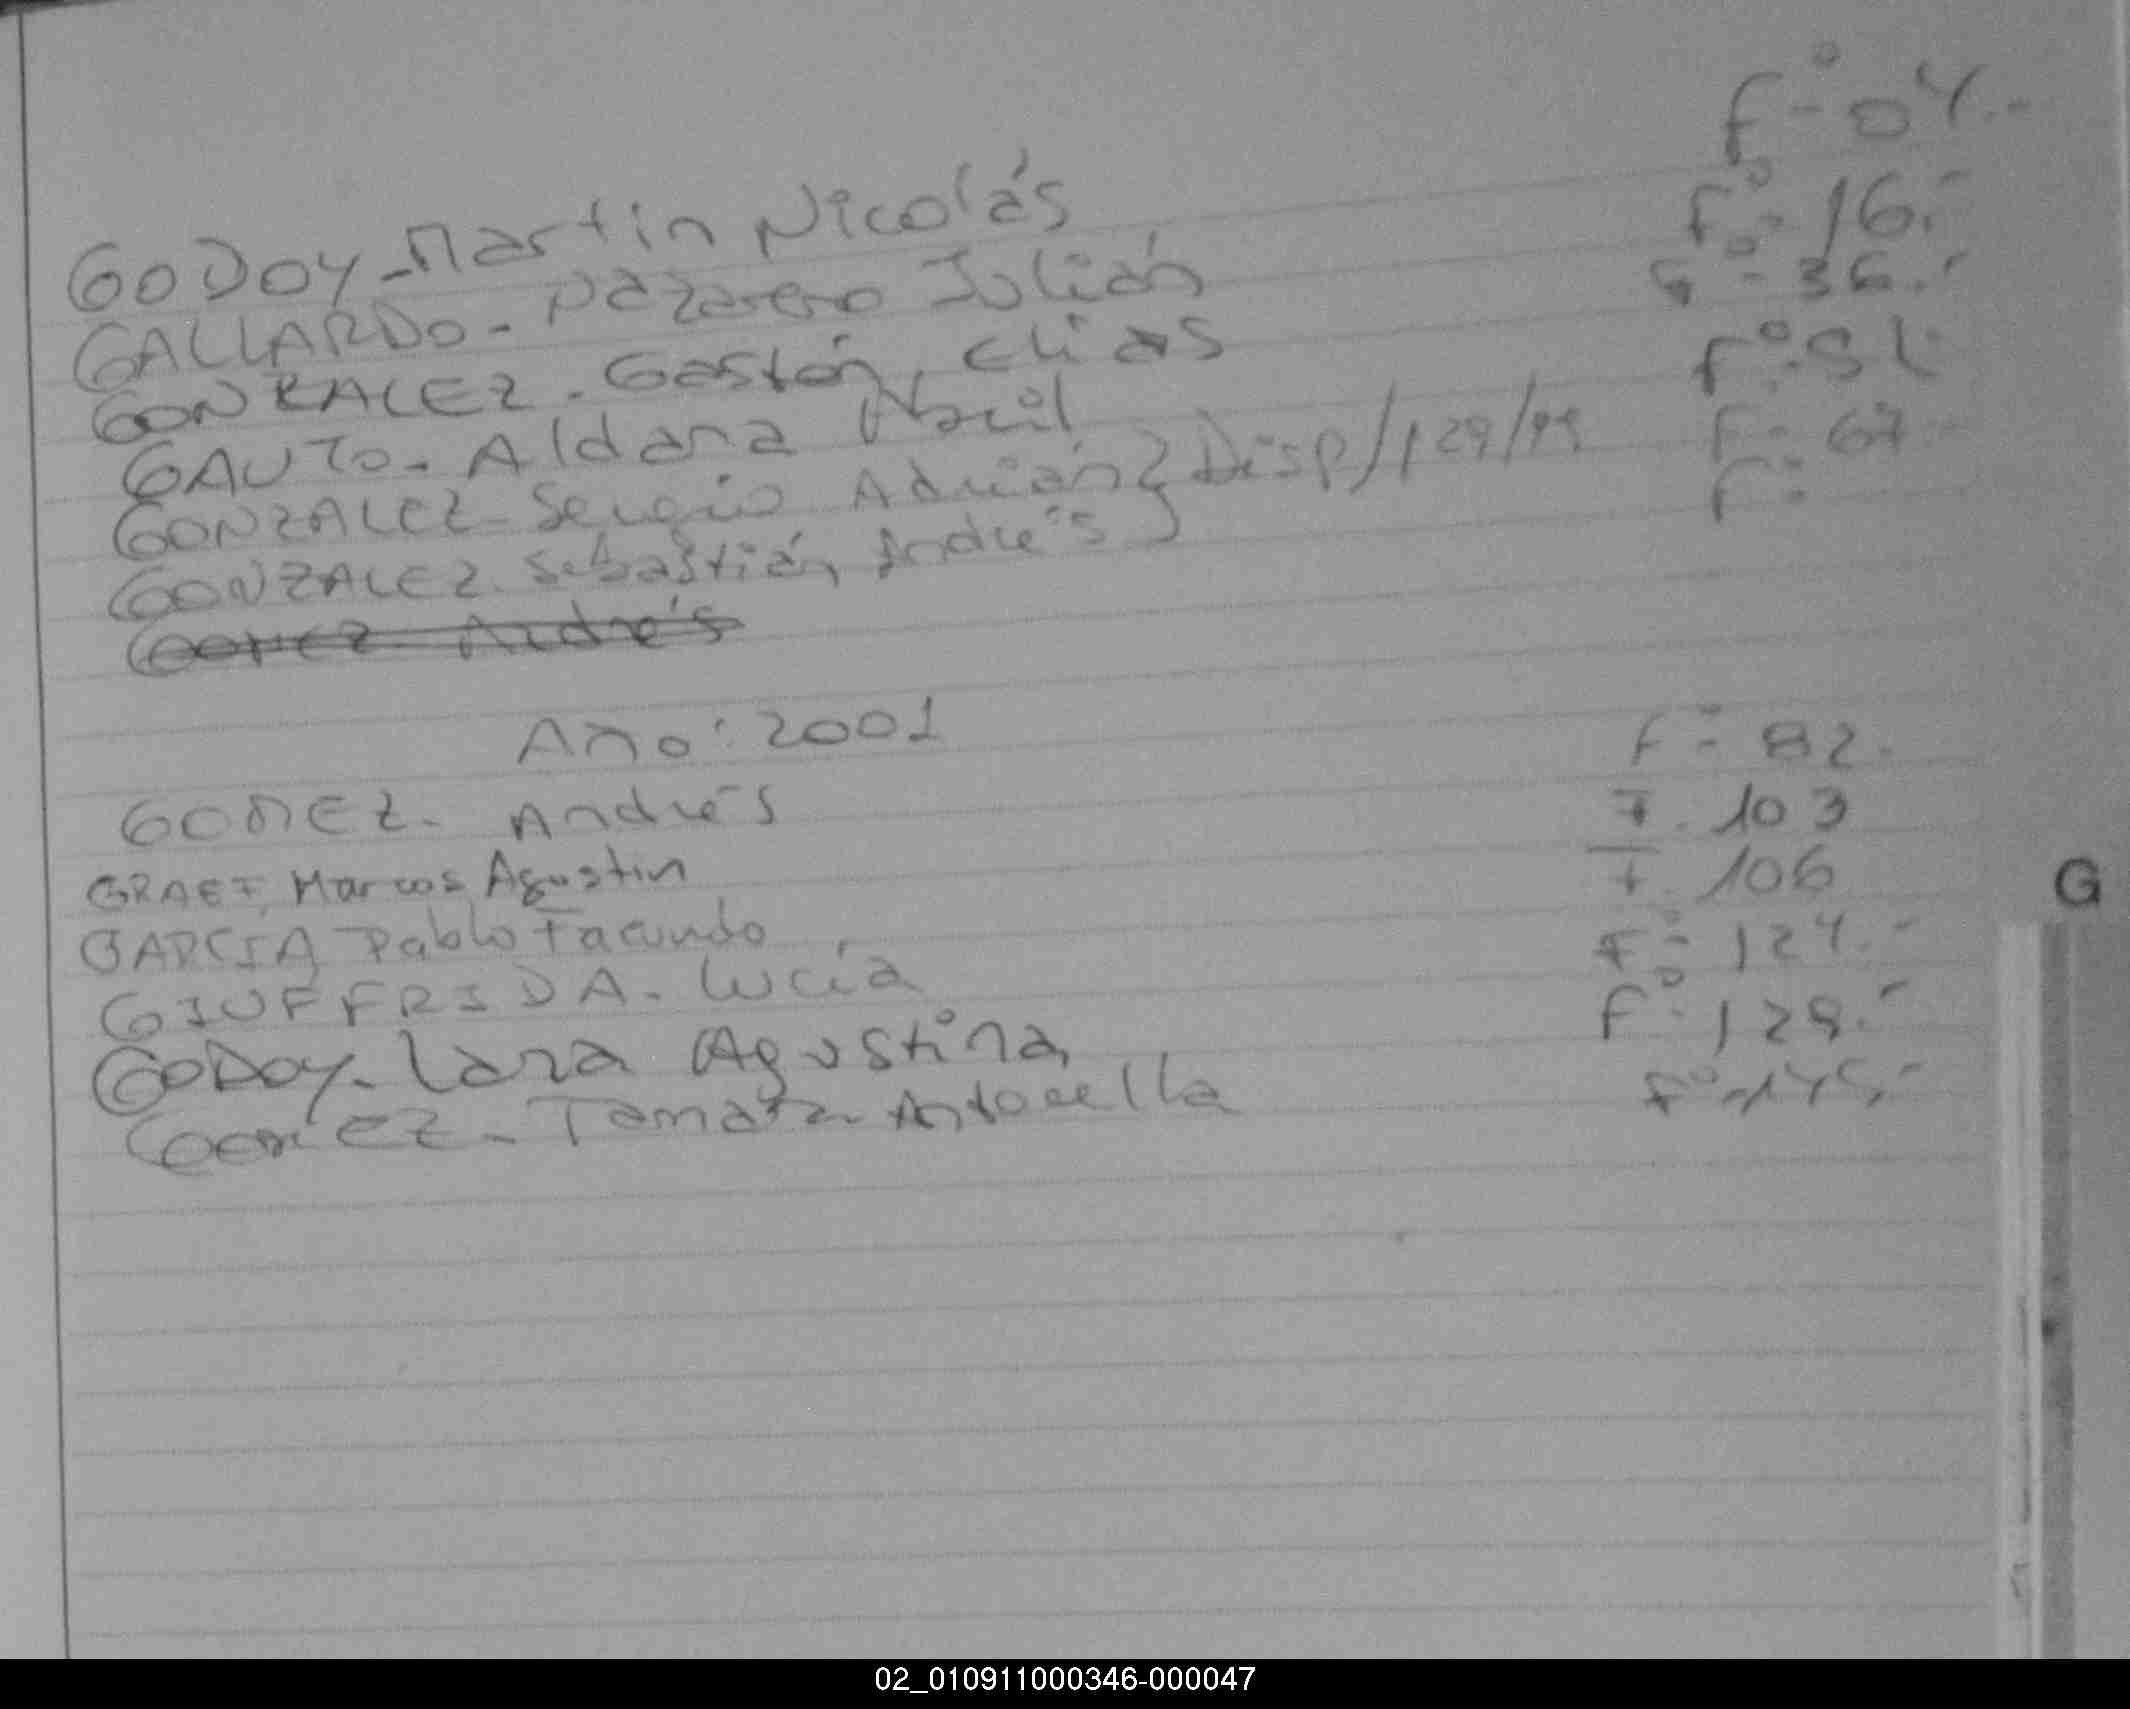 GODOY - Martin Nicolás Fº- 04.-
GALLARDO - Nazareno Julián Fº- 16.-
GONZALEZ - Gastón Elias Fº- 36.-
GAUTO - Aldana Abril Fº- 51.
GONZALEZ - Sergio Adrián } Disp/129/99 Fº- 67
GONZALEZ - Sebastián Andrés Fº-
GOMEZ Andrés
Año: 2001
GOMEZ - Andrés Fº- 82.
GRAEF, Marcos Agustin F. 103
GARCIA Pablo Facundo F. 106
GIUFFRIDA - Lucía Fº- 124.-
GODOY - Lara Agustina Fº- 129.-
GOMEZ - Tamara Antonella Fº- 145.-
G
02_010911000346-000047